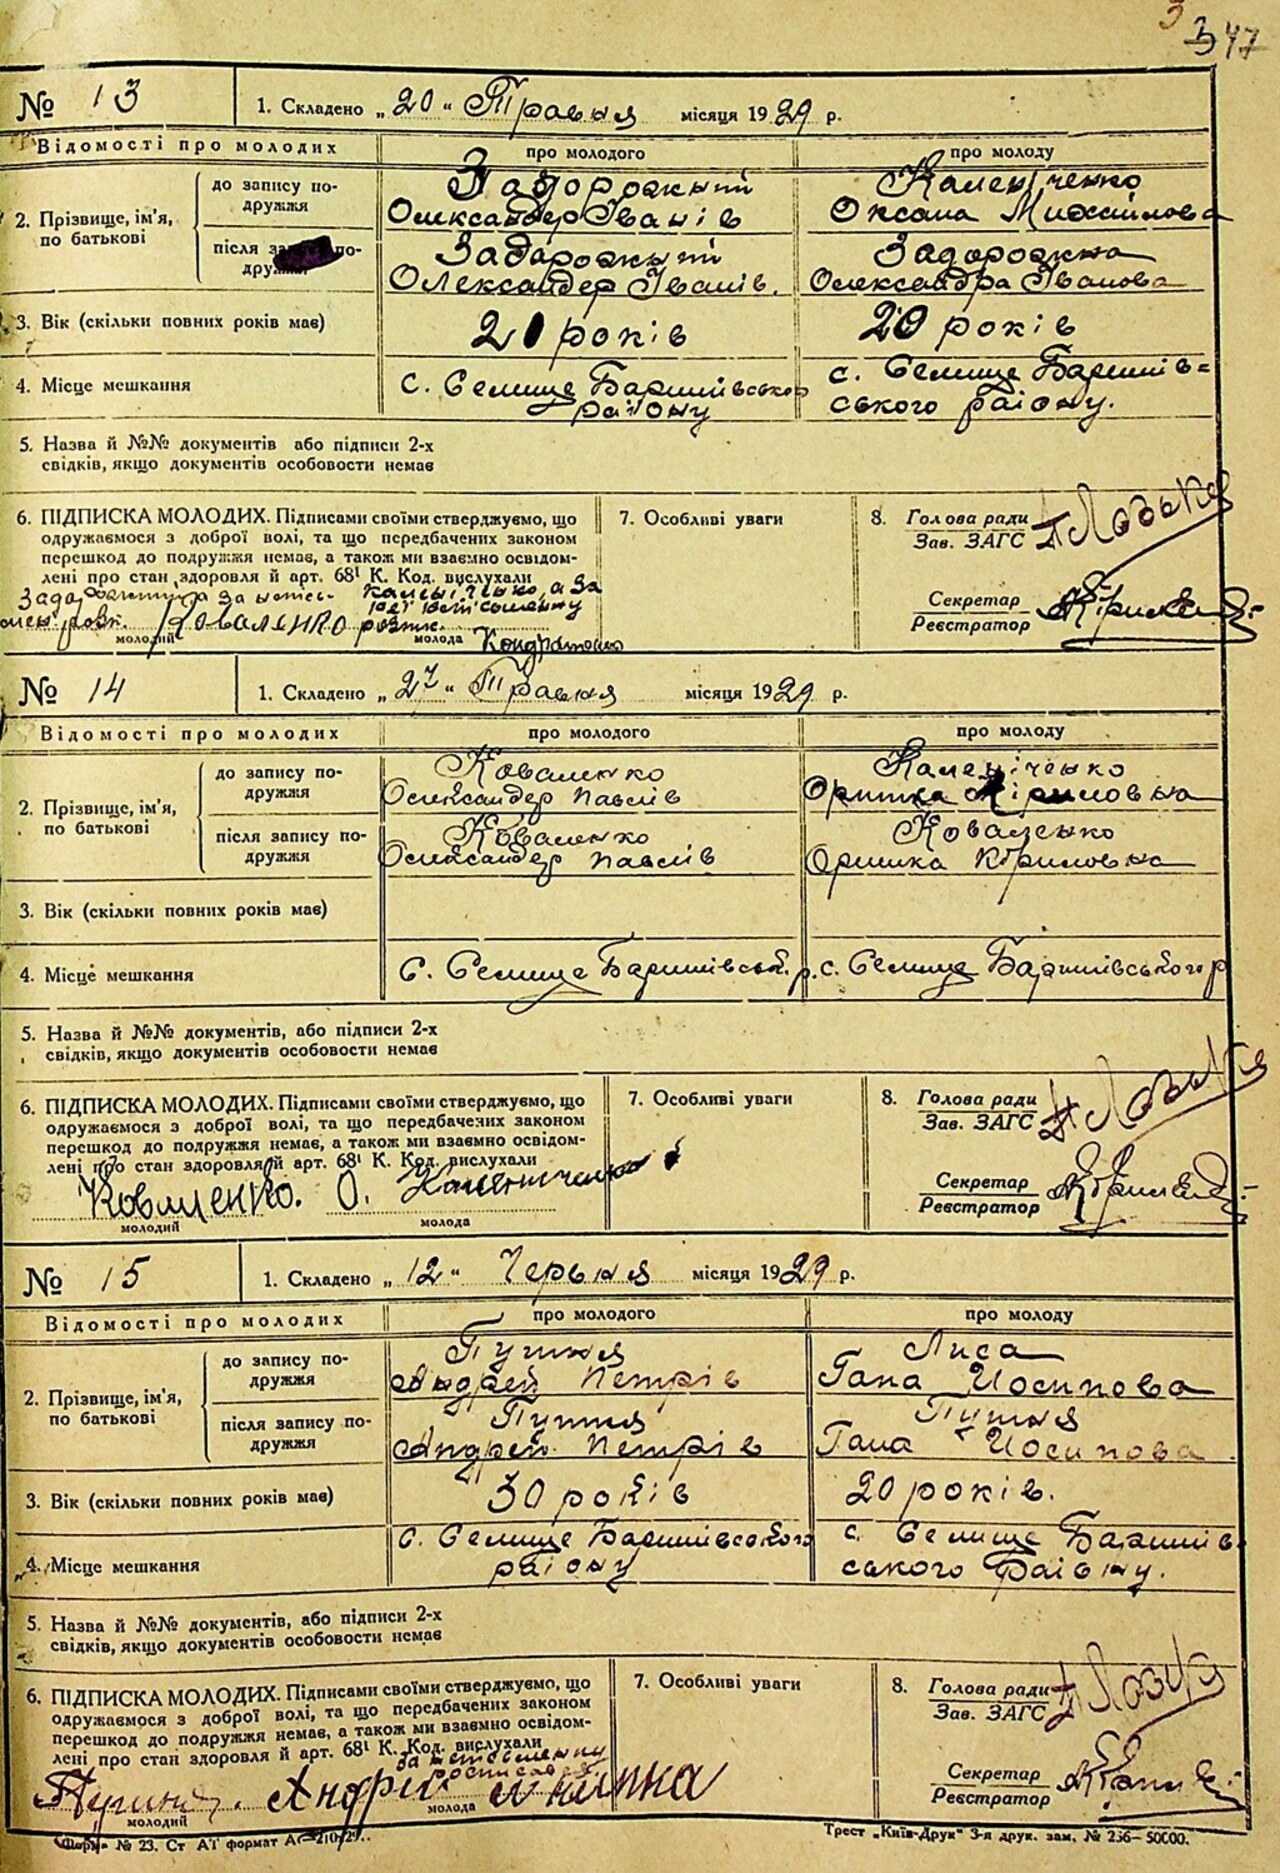 3 47
№ 13 1. Складено „20“ Травня місяця 1929 р.
Відомості про молодих про молодого про молоду
2. Прізвище, ім’я, по батькові
до запису подружжя
Задорожний Олександер Іванів
Каленіченко Оксана Михайлова
після запису подружжя
Задорожний Олександер Іванів.
Задорожна Олександра Іванова
3. Вік (скільки повних років має) 20 років 20 років
4. Місце мешкання
с. Селище Баришівського району
с. Селище Баришівського району.
5. Назва й №№ документів або підписи 2-х
свідків, якщо документів особовости немає
6. ПІДПИСКА МОЛОДИХ. Підписами своїми стверджуємо, що
одружаємося з доброї волі, та що передбачених законом
перешкод до подружжя немає, а також ми взаємно освідом-
лені про стан здоровля й арт. 68¹ К. Код. вислухали
Коваленко
молодий молода
7. Особливі уваги
8. Голова ради
Зав. ЗАГС
Секретар
Реєстратор
№ 14 1. Складено „27“ Травня місяця 1929 р.
Відомості про молодих про молодого про молоду
2. Прізвище, ім’я, по батькові
до запису подружжя
Коваленко Олександер Павлів
Каленіченко Оришка Кириловна
після запису подружжя
Коваленко Олександер Павлів
Коваленко Оришка Кириловна
3. Вік (скільки повних років має)
4. Місце мешкання
с. Селище Баришівськ. р.
с. Селище Баришівського р
5. Назва й №№ документів, або підписи 2-х
свідків, якщо документів особовости немає
6. ПІДПИСКА МОЛОДИХ. Підписами своїми стверджуємо, що
одружаємося з доброї волі, та що передбачених законом
перешкод до подружжя немає, а також ми взаємно освідом-
лені про стан здоровля й арт. 68¹ К. Код. вислухали
Коваленко. О. Каленіченко
молодий молода
7. Особливі уваги
8. Голова ради
Зав. ЗАГС
Секретар
Реєстратор
№ 15 1. Складено „12“ Червня місяця 1929 р.
Відомості про молодих про молодого про молоду
2. Прізвище, ім’я, по батькові
до запису подружжя
Андрей Петрів
Лиса Гана Йосипова
після запису подружжя
Андрей Петрів
Гана Йосипова
3. Вік (скільки повних років має) 30 років 20 років.
4. Місце мешкання
с. Селище Баришівського району
с. Селище Баришівського району.
5. Назва й №№ документів, або підписи 2-х
свідків, якщо документів особовости немає
6. ПІДПИСКА МОЛОДИХ. Підписами своїми стверджуємо, що
одружаємося з доброї волі, та що передбачених законом
перешкод до подружжя немає, а також ми взаємно освідом-
лені про стан здоровля й арт. 68¹ К. Код. вислухали
Андрій
молодий молода
7. Особливі уваги
8. Голова ради
Зав. ЗАГС
Секретар
Реєстратор
Форма № 23. Ст А1 формат
Трест „Київ-Друк“ 3-я друк. зам. № 236—50000.